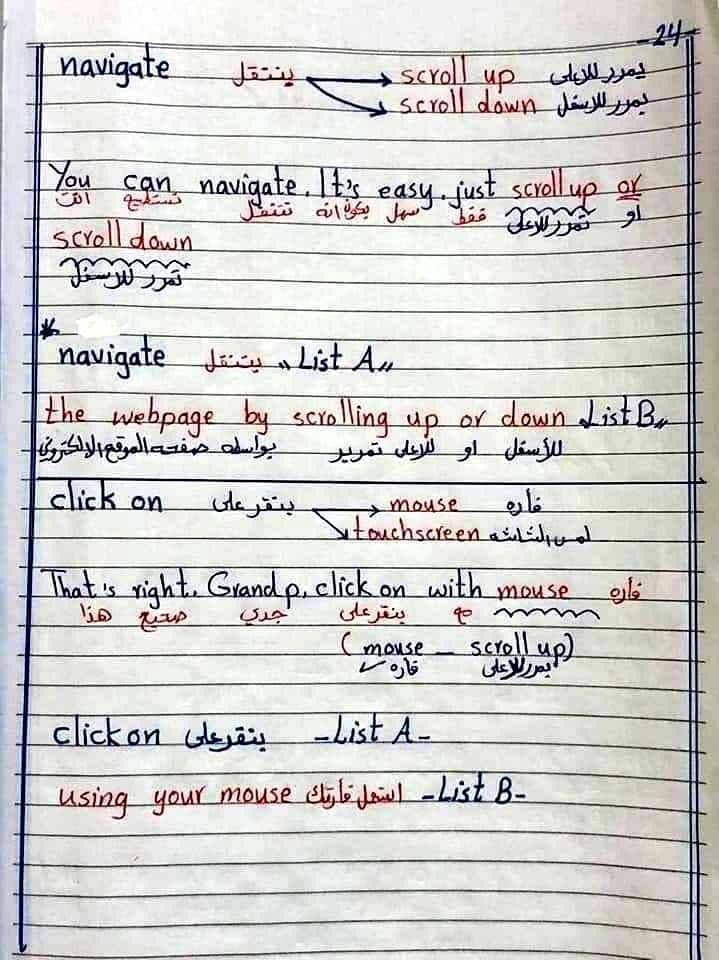 -24-
navigate ينتقل scroll up يمرر للاعلى
scroll down يمرر للاسفل
You can navigate. It's easy. just scroll up or
انت تستطيع تنتقل انه يكون سهل فقط تمرر للاعلى او
scroll down
تمرر للاسفل
* navigate ينتقل "List A"
the webpage by scrolling up or down "List B"
صفحه الموقع الالكتروني بواسطه تمرير للاعلى او للأسفل
click on ينقر على mouse فاره
touchscreen لمس الشاشه
That's right. Grandp, click on with mouse فاره
هذا صحيح جدي ينقر على مع
( mouse – scroll up)
فاره يمرر للاعلى
click on ينقر على -List A-
using your mouse استعمل فارتك -List B-